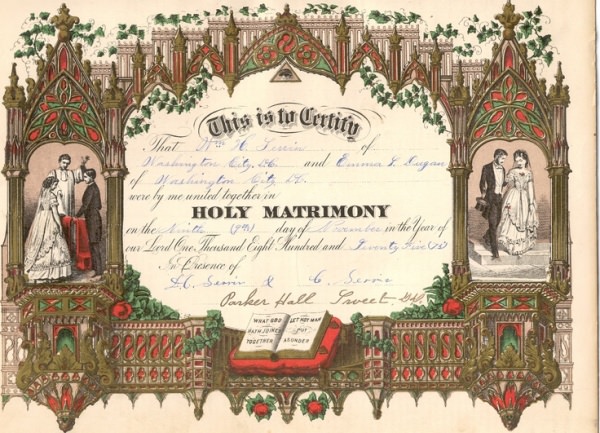 This is to Certify
That Wm H. Servin of
Washington City D.C. and Emma S. Dugan
of Washington City D.C.
were by me united together in
HOLY MATRIMONY
on the Ninth (9th) day of November in the Year of
our Lord One Thousand Eight Hundred and
In Presence of
H. Servin & C. Servin
Parker Hall Sweet
WHAT GOD HATH JOINED TOGETHER
LET NOT MAN PUT ASUNDER